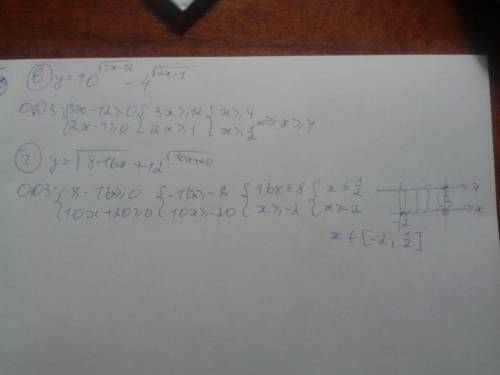 в) y = 10^√(3x-12) - 4^√(2x-1)
ОДЗ: { 3x-12≥0 2x-1≥0 { 3x≥12 2x≥1 { x≥4 x≥1/2 ⇒ x≥4
г) y = √(8-16x) + 12^√(10x+20)
ОДЗ: { 8-16≥0 10x+20≥0 { -16x≥-8 10x≥-20 { 16x≤8 x≥-2 { x≤1/2 x≥-2
-2
x ∈ [-2; 1/2]